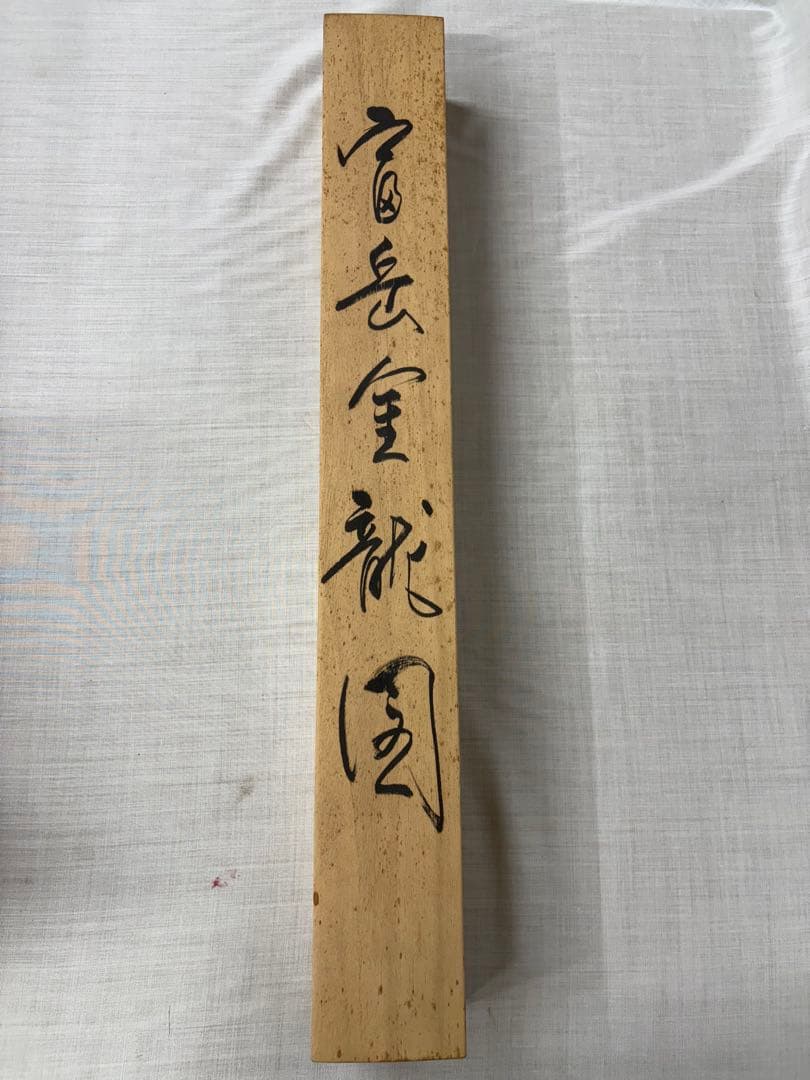 富岳金龍図